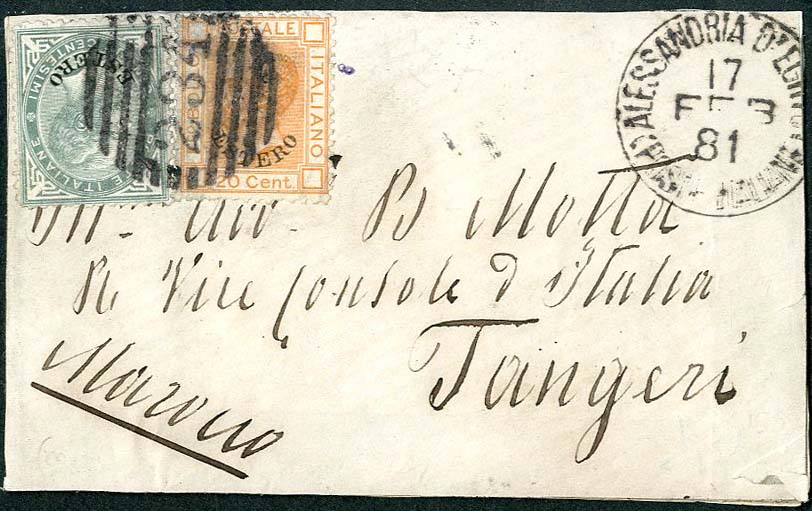 CENTESIMI
ESTERO
ITALIANE
POSTALE
ITALIANO
ESTERO
20 Cent.
234
ALESSANDRIA D'EGITTO
17
FEB
81
B Motta
R Vice Console d'Italia
Tangeri
Marocco